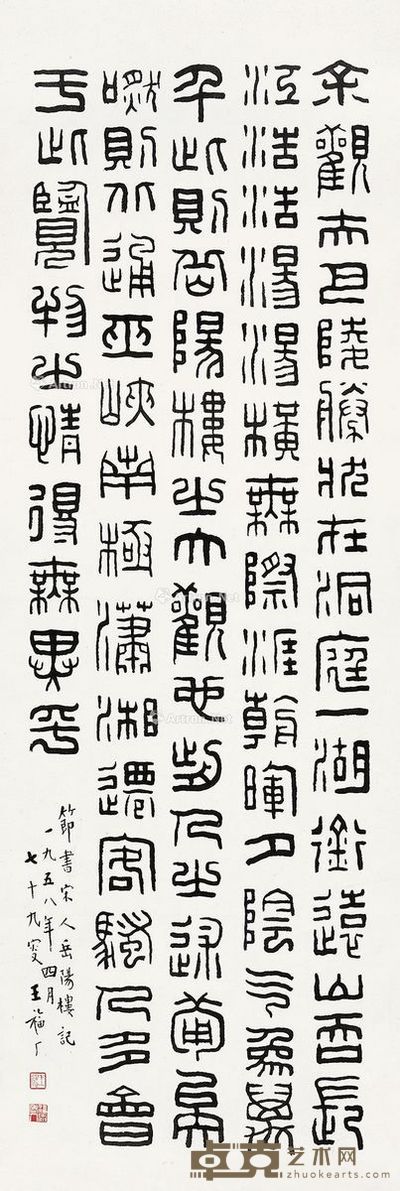 余觀夫巴陵勝狀在洞庭一湖銜遠山吞長
江浩浩湯湯橫無際涯朝暉夕陰气象萬
千此則岳陽樓之大觀也前人之述葡矣
嘫則北通巫峽南極瀟湘遷客騷人多會
于此覽物之情得無異乎
節書宋人岳陽樓記
一九五八年四月
七十九叟王福厂
卓克艺术网
www.zhuokearts.com